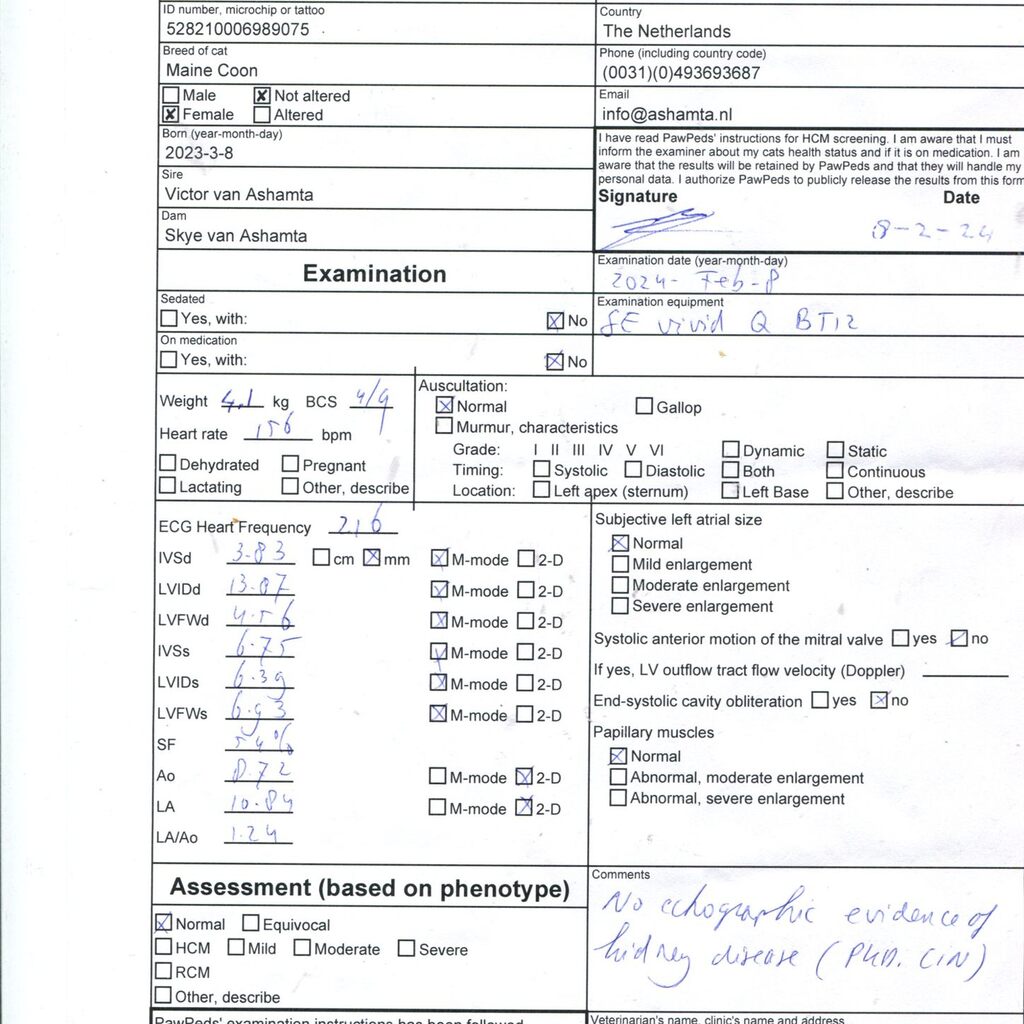 ID number, microchip or tattoo
528210006989075
Country
The Netherlands
Breed of cat
Maine Coon
Phone (including country code)
(0031)(0)493693687
Male Not altered
Female Altered
Email
info@ashamta.nl
Born (year-month-day)
2023-3-8
I have read PawPeds' instructions for HCM screening. I am aware that I must
inform the examiner about my cats health status and if it is on medication. I am
aware that the results will be retained by PawPeds and that they will handle my
personal data. I authorize PawPeds to publicly release the results from this form
Sire
Victor van Ashamta
Signature Date
8-2-24
Dam
Skye van Ashamta
Examination
Examination date (year-month-day)
2024- Feb-8
Sedated
Yes, with: No
Examination equipment
GE vivid Q BT12
On medication
Yes, with: No
Weight 4.1 kg BCS 4/9
Heart rate 156 bpm
Dehydrated Pregnant
Lactating Other, describe
Auscultation:
Normal Gallop
Murmur, characteristics
Grade: I II III IV V VI Dynamic Static
Timing: Systolic Diastolic Both Continuous
Location: Left apex (sternum) Left Base Other, describe
ECG Heart Frequency 216
IVSd 3.83 cm mm M-mode 2-D
LVIDd 13.07 M-mode 2-D
LVFWd 4.56 M-mode 2-D
IVSs 6.75 M-mode 2-D
LVIDs 6.39 M-mode 2-D
LVFWs 6.93 M-mode 2-D
SF 54%
Ao 8.72 M-mode 2-D
LA 10.84 M-mode 2-D
LA/Ao 1.24
Subjective left atrial size
Normal
Mild enlargement
Moderate enlargement
Severe enlargement
Systolic anterior motion of the mitral valve yes no
If yes, LV outflow tract flow velocity (Doppler)
End-systolic cavity obliteration yes no
Papillary muscles
Normal
Abnormal, moderate enlargement
Abnormal, severe enlargement
Assessment (based on phenotype)
Normal Equivocal
HCM Mild Moderate Severe
RCM
Other, describe
Comments
No echographic evidence of
kidney disease (PKD. CIN)
PawPeds' examination instructions has been followed
Veterinarian's name, clinic's name and address